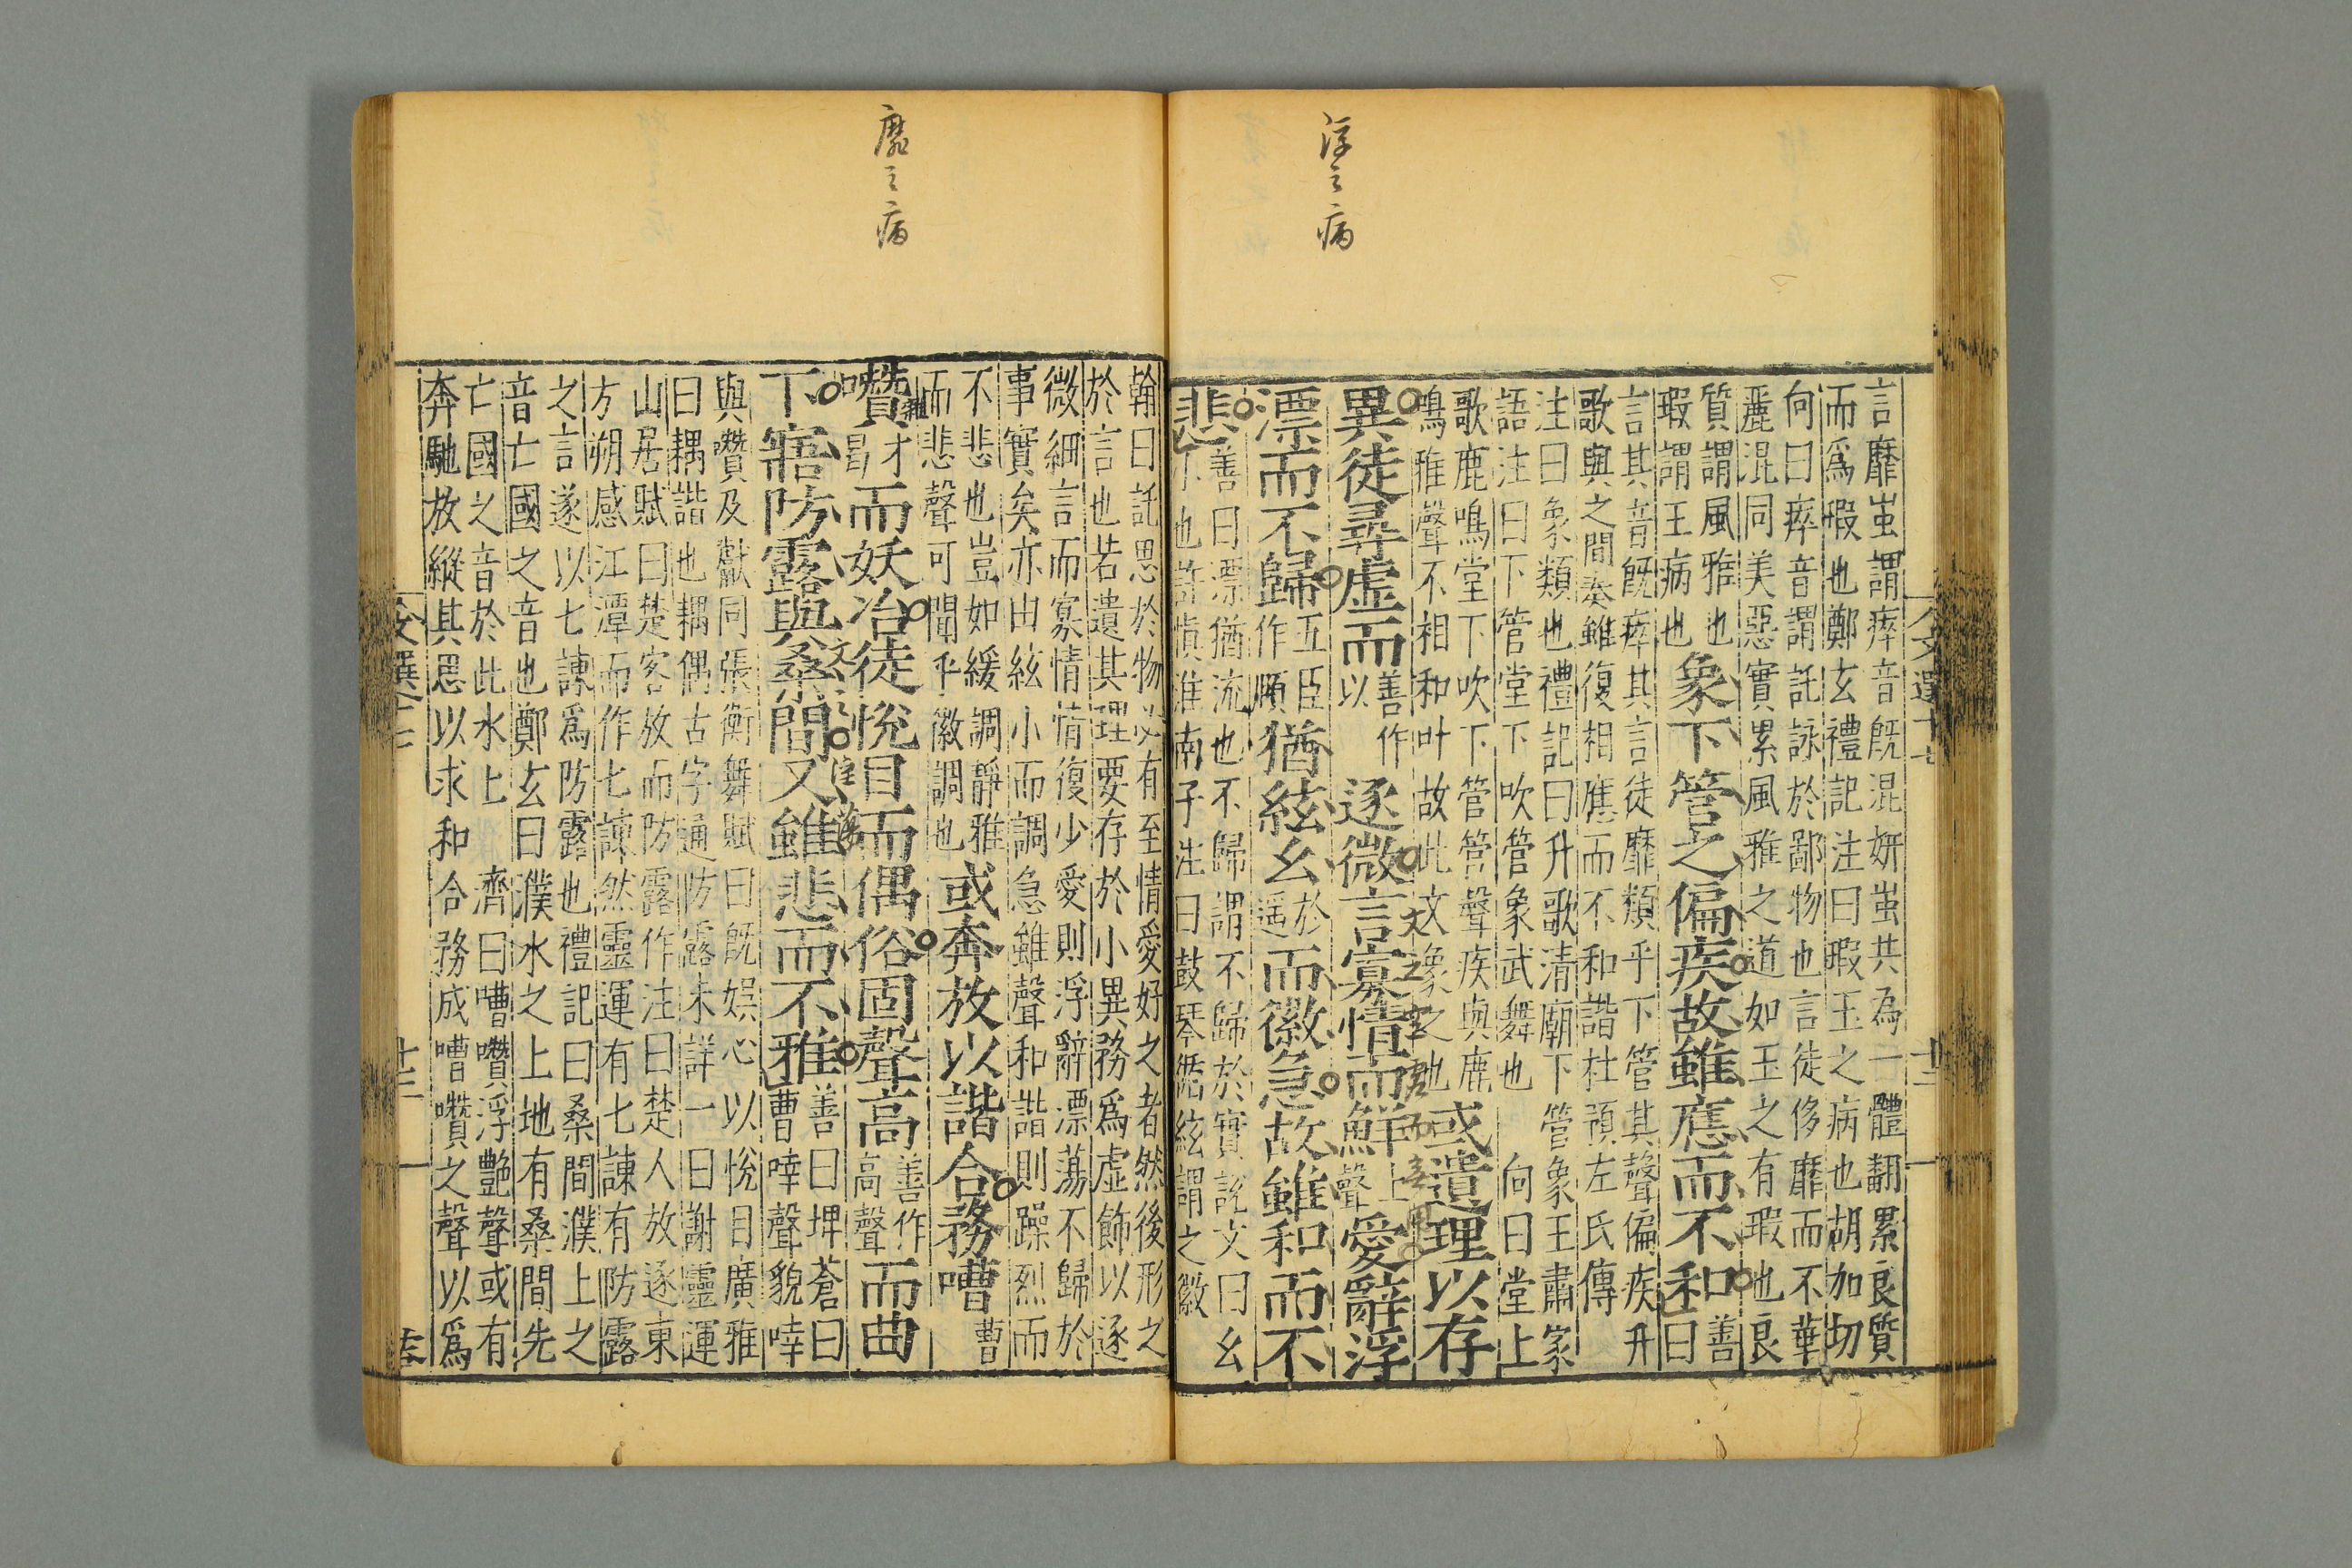 浮之病
言靡蚩謂瘁音既混妍蚩共為一體翻累良質
而爲瑕也鄭玄禮記注曰瑕玉之病也胡加切
向曰瘁音謂託詠於鄙物也言徒侈靡而不華
麗混同美惡實累風雅之道如玉之有瑕也良
質謂風雅也
瑕謂玉病也
象下管之偏疾故雖應而不和
善
曰
言其音既瘁其言徒靡類乎下管其聲偏疾升
歌與之間奏雖復相應而不和諧杜預左氏傳
注曰象類也禮記曰升歌清廟下管象王肅家
語注曰下管堂下吹管象武舞也
向曰堂上
歌鹿鳴堂下吹下管管聲疾與鹿
鳴雅聲不相和叶故此文象之也
或遺理以存
異徒尋虛而
善作
以
逐微言寡情而鮮
上
聲
愛辭浮
漂而不歸
五臣
作順
猶絃幺
於
遥
而徽急故雖和而不
悲
善曰漂猶流也不歸謂不歸於實說文曰幺
小也許慎淮南子注曰鼓琴循絃謂之徽
文選十七
十三
靡之病
翰曰託思於物必有至情愛好之者然後形之
於言也若遺其理要存於小異務爲虛飾以逐
微細言而寡情情復少愛則浮辭漂蕩不歸於
事實矣亦由絃小而調急雖聲和諧則躁烈而
不悲也豈如緩調靜雅
而悲聲可聞乎徽調也
或奔放以諧合務嘈
曹
囋
才
曷
而妖冶徒悅目而偶俗固聲高
善作
高聲
而曲
下寤防露與桑間又雖悲而不雅
善曰埤蒼曰
曹啈聲貌啈
與囋及獻同張衡舞賦曰既娛心以悅目廣雅
曰耦諧也耦偶古字通防露未詳一曰謝靈運
山居賦曰楚客放而防露作注曰楚人放逐東
方朔感江潭而作七諫然靈運有七諫有防露
之言遂以七諫爲防露也禮記曰桑間濮上之
音亡國之音也鄭玄曰濮水之上地有桑間先
亡國之音於此水上
齊曰嘈囋浮艷聲或有
奔馳放縱其思以求和合務成嘈囋之聲以爲
文選十七
十三